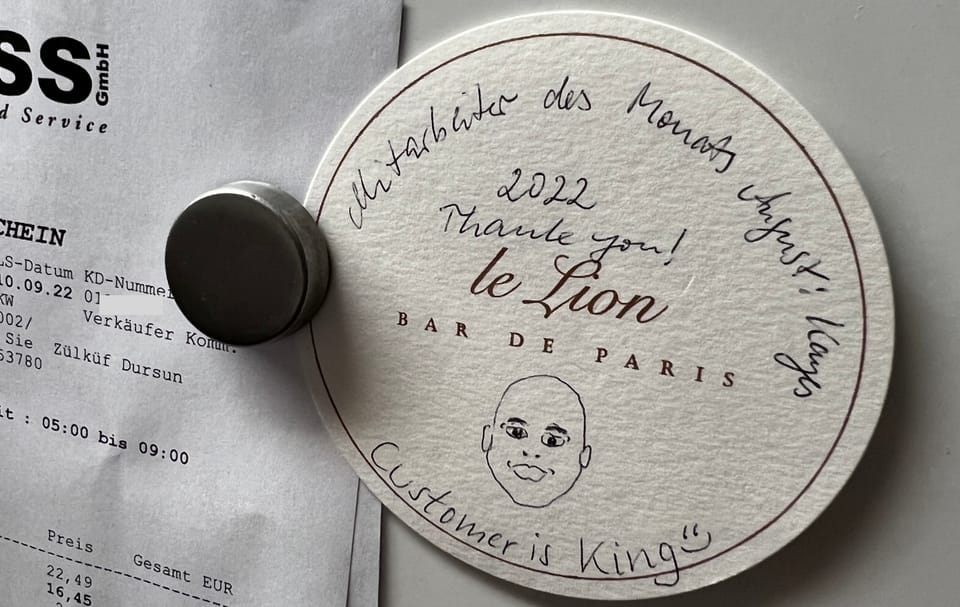 SS GmbH
d Service
CHEIN
LS-Datum KD-Nummer
10.09.22 01
KW
002/ Verkäufer Komm.
Sie Zülküf Dursun
53780
it : 05:00 bis 09:00
Preis Gesamt EUR
22,49
16,45
Mitarbeiter des Monats August:
2022
Thank you!
le Lion
BAR DE PARIS
Customer is King